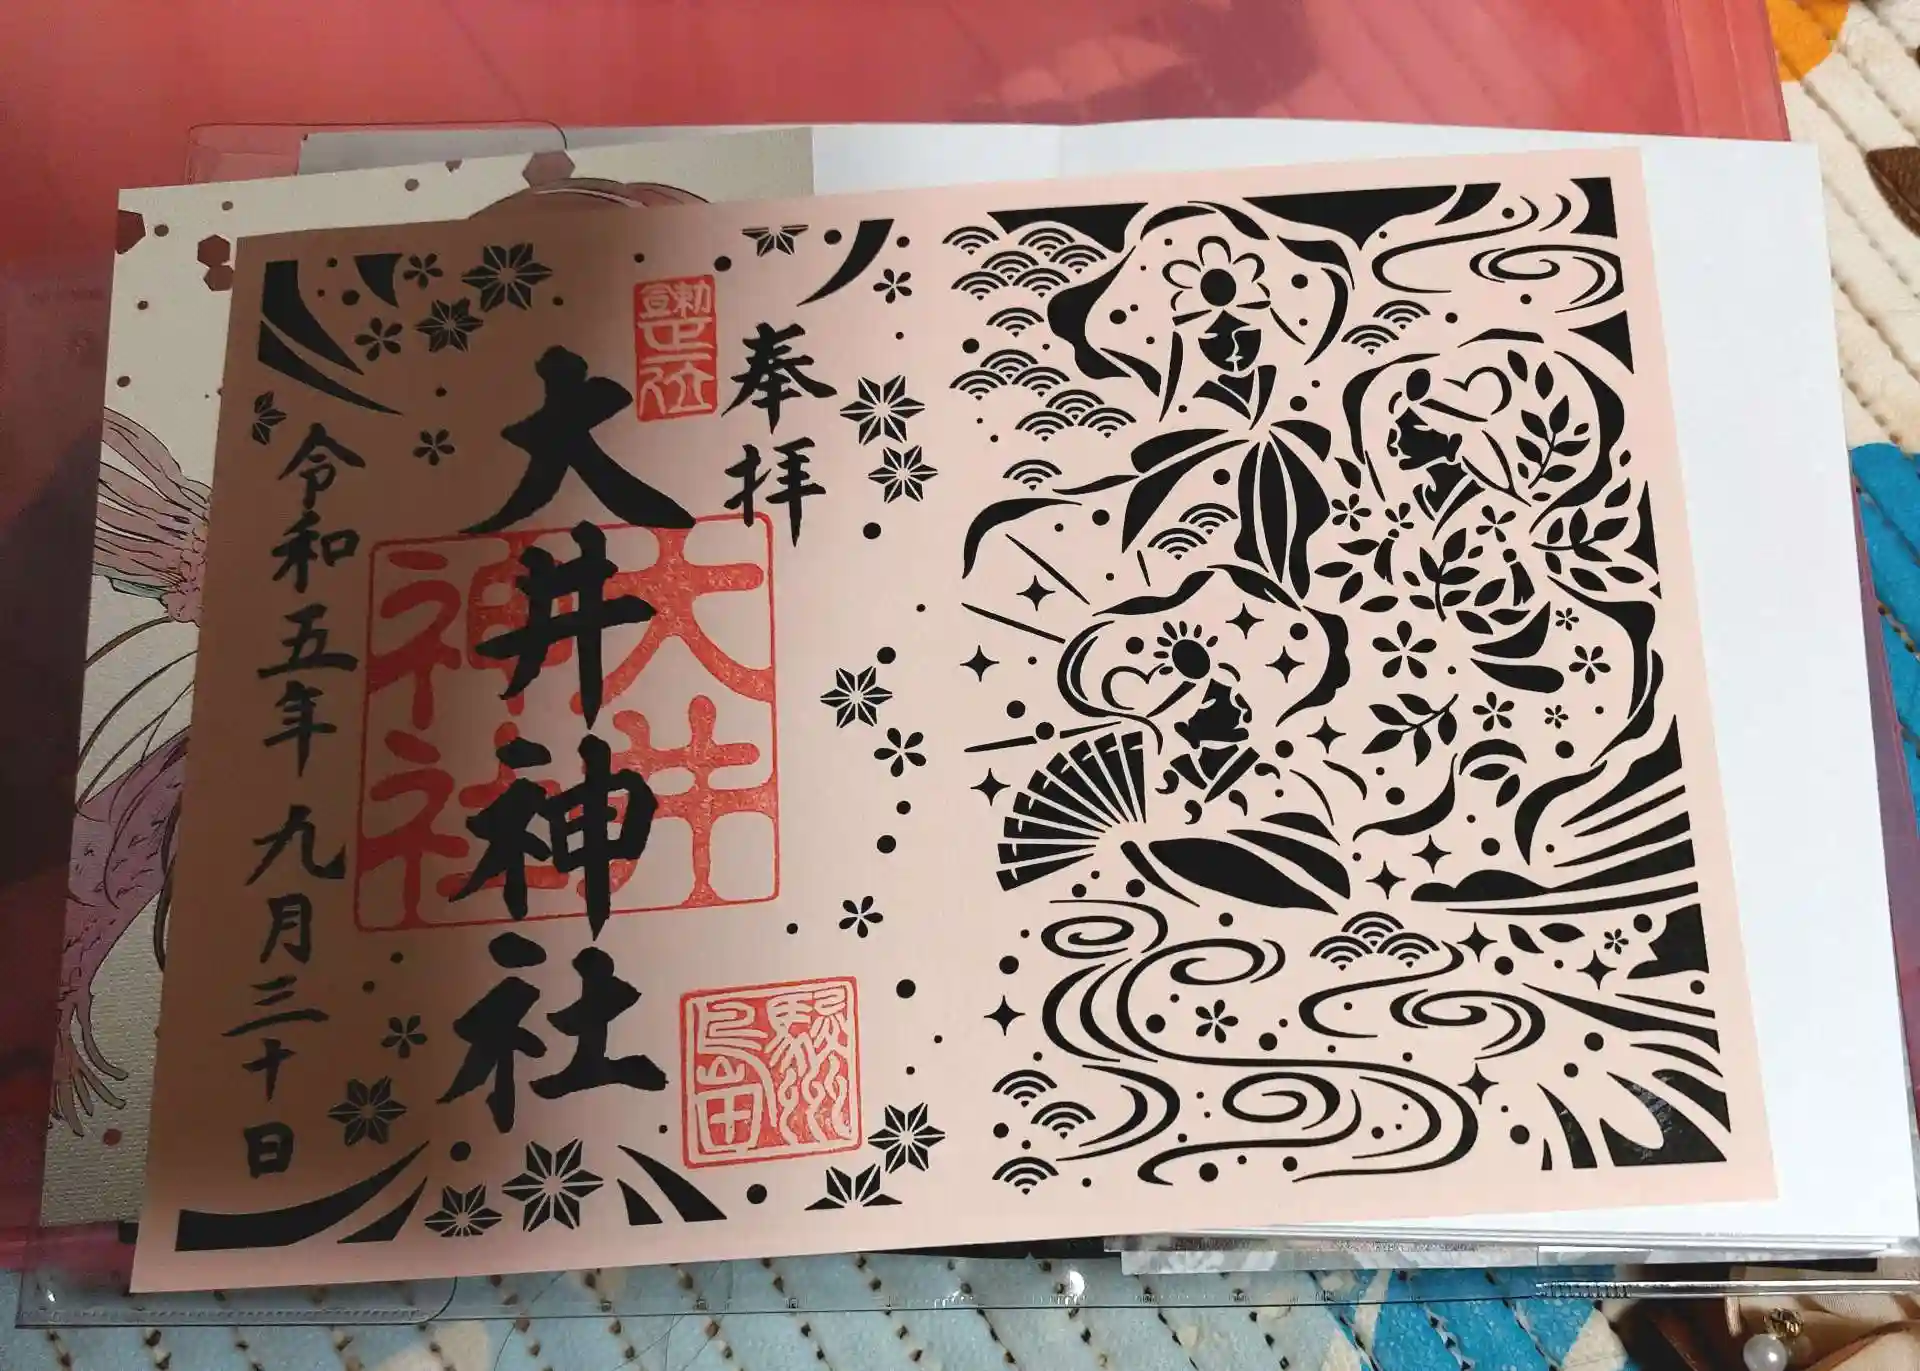 奉拝
勅宣正一位
大井神社
大井神社
駿州島田
令和五年 九月三十日